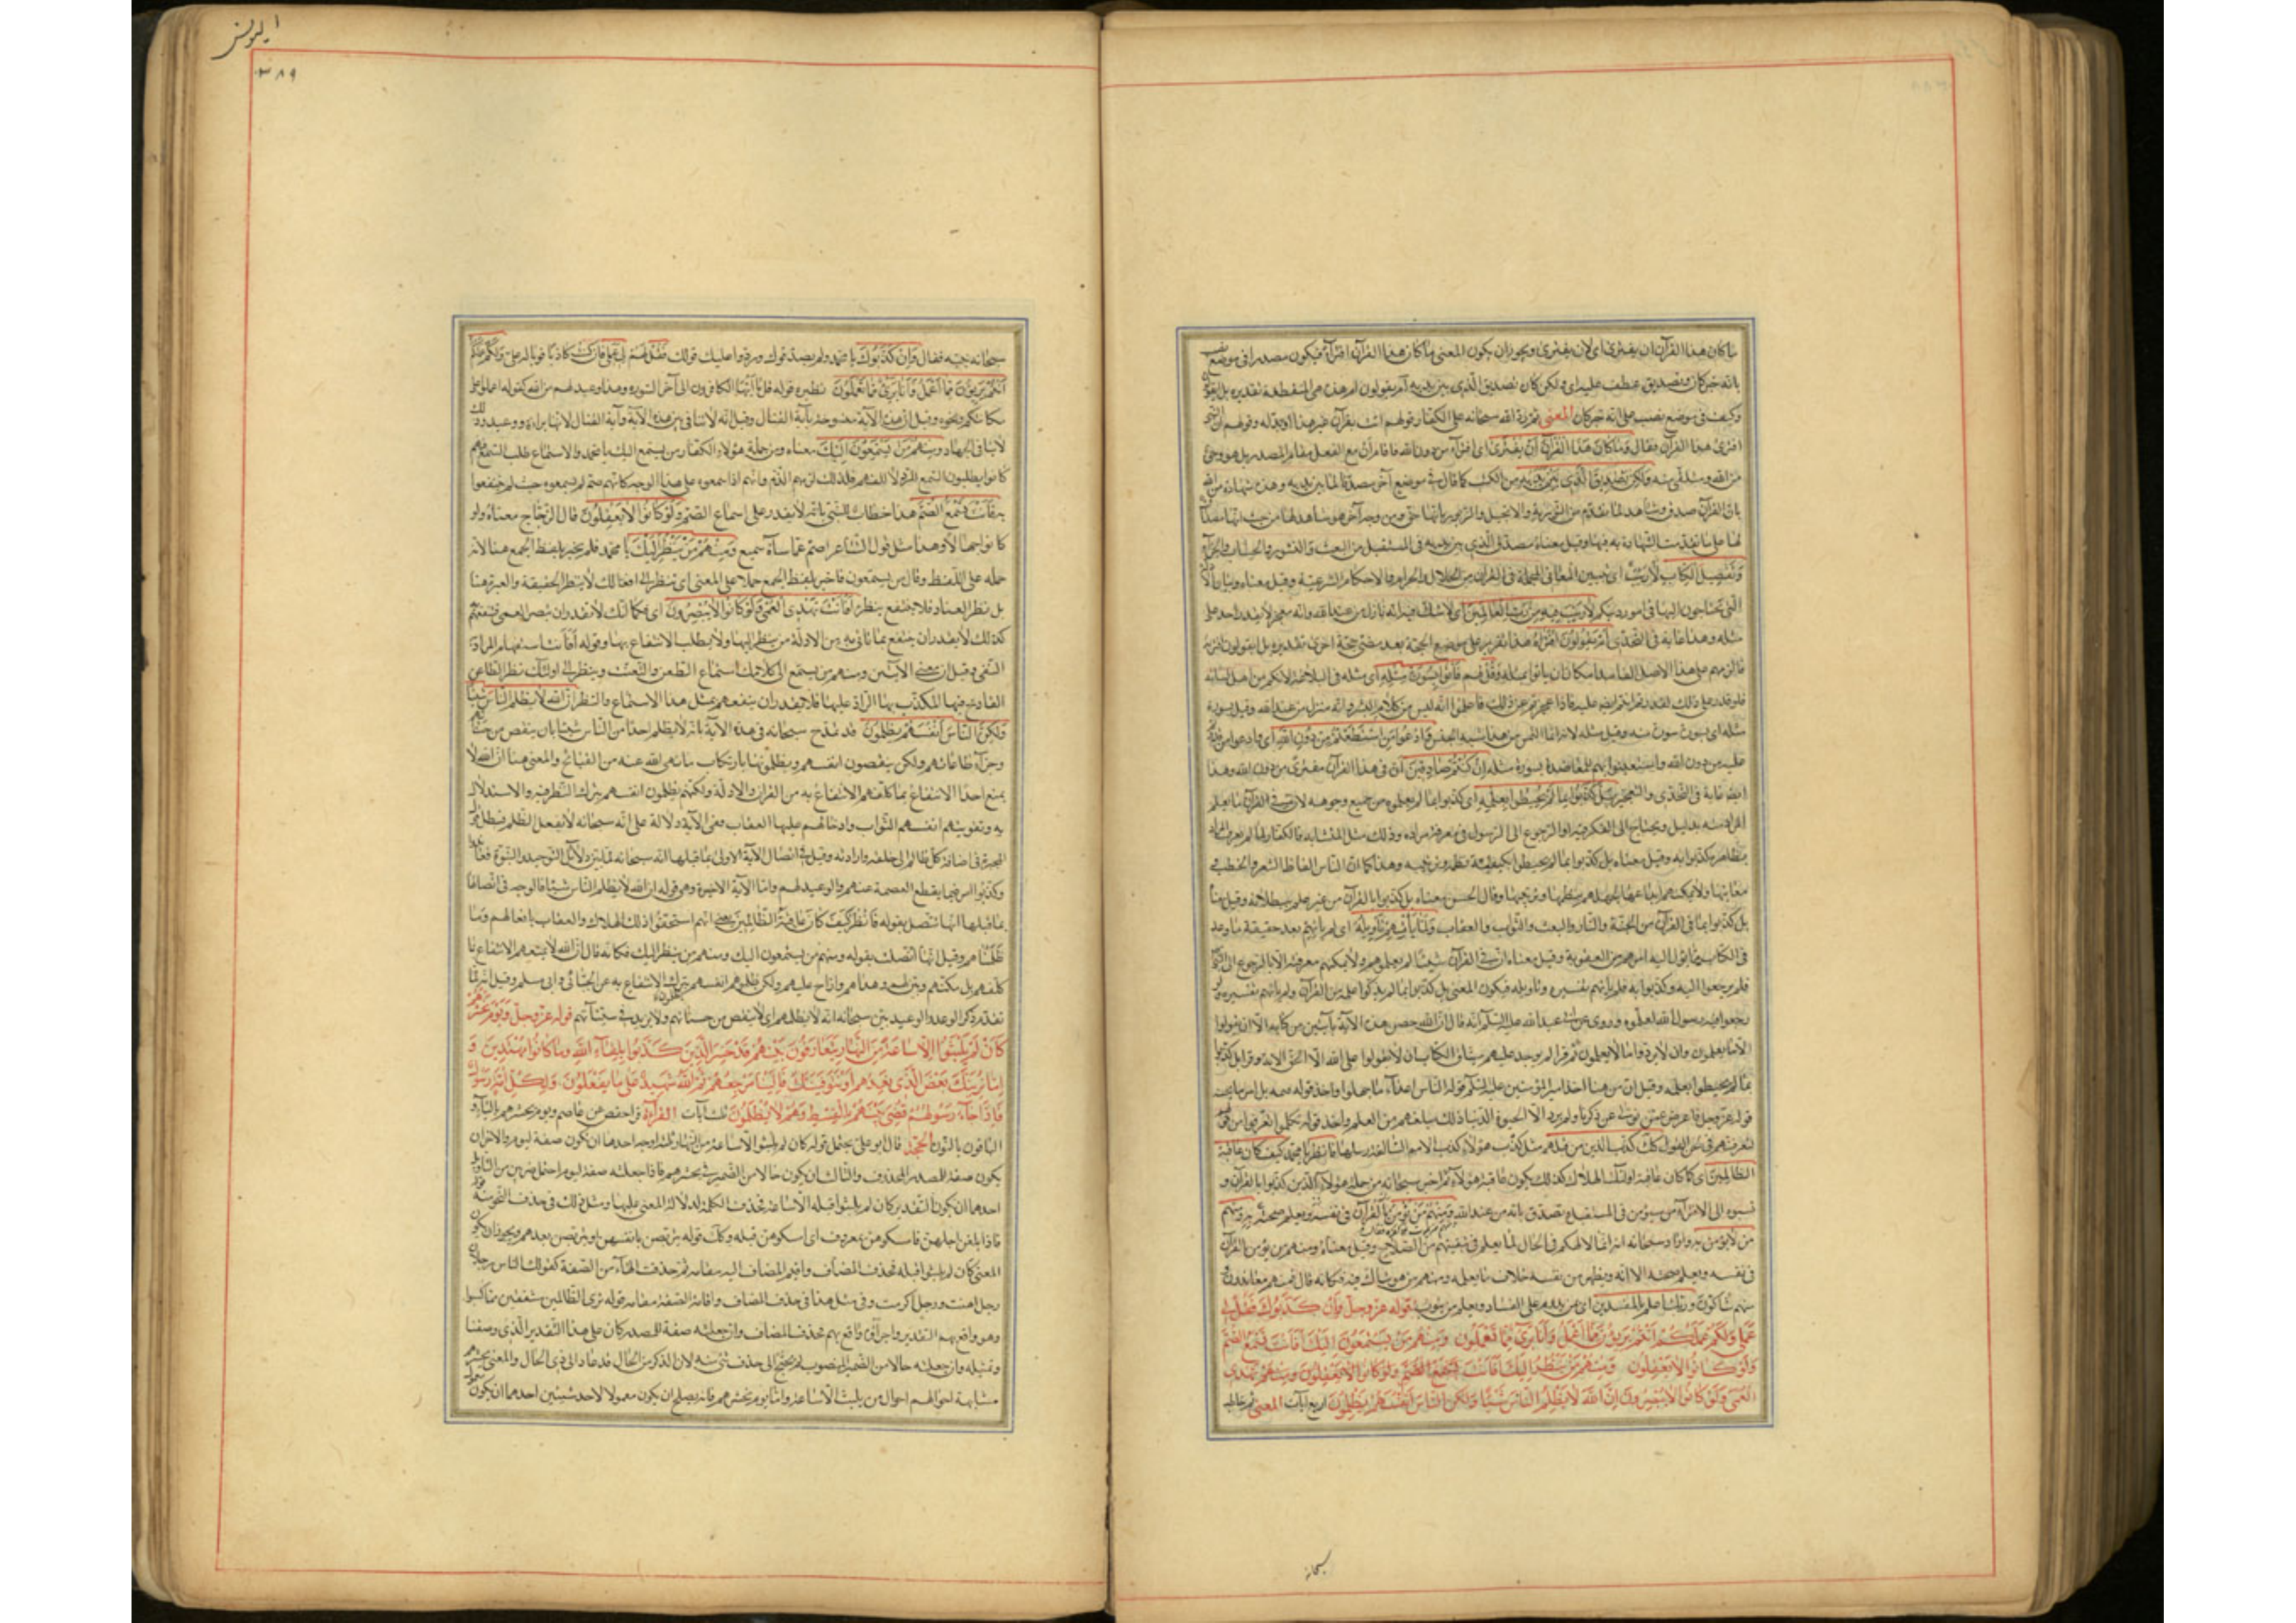 ما كان هذا القرآن ان يفترى اى لان يفترى ويجوز ان يكون المعنى ما كان هذا القرآن افتراء فيكون مصدرا فى موضع نصب
بانه خبر كان وتصديق عطف عليه اى ولكن كان تصديق الذى بين يديه ام يقولون ام هذه هى المنقطعة تقديره بل ايقولون
وكيف فى موضع نصب على انه خبر كان المعنى ثم رد الله سبحانه على الكفار قولهم ائت بقرآن غير هذا او بدله وقولهم ان النبى
افترى هذا القرآن فقال وما كان هذا القرآن ان يفترى اى افتراء من دون الله فاقام ان مع الفعل مقام المصدر بل هو وحى
من الله ومتلقى منه ولكن تصديق الذى بين يديه من الكتب كما قال فى موضع آخر مصدقا لما بين يديه وهذه شهادة من الله
بان القرآن صدق وشاهد لما تقدم من التورية والانجيل والزبور بانها حق ومن وجه آخر هو شاهد لها من حيث انها مصداق
لها على ما تقدمت الشهادة به فيها وقيل معناه تصديق الذى بين يديه فى المستقبل من البعث والنشور والحساب والجزاء
وتفصيل الكتاب لا ريب اى تبيين المعانى المجملة فى القرآن من الحلال والحرام والاحكام الشرعية وقيل معناه وبيان الادلة
التى تحتاجون اليها فى امور دينكم لا ريب فيه من رب العالمين اى لا شك فيه انه نازل من عند الله وانه معجز لا يقدر احد على
مثله وهذا غاية فى التحدى ام يقولون افتراه هذا تقرير على موضع الحجة بعد مضى حجة اخرى تقديره بل ايقولون افتراه
فالزمهم على هذا الاصل الفاسد امكان ان ياتوا بمثله وقل لهم فأتوا بسورة مثله اى مثله فى البلاغة لانكم من اهل لسانه
فلو قدر على ذلك لقدرتم انتم ايضا عليه فاذا عجزتم عن ذلك فاعلموا انه ليس من كلام البشر وانه منزل من عند الله وقيل بسورة
مثله اى بسورة مثل سورة منه وقيل مثله لانه انما التمس من هذا شبه الجنس وادعوا من استطعتم من دون الله اى وادعوا من قدرتم
عليه من دون الله واستعينوا بهم للمعاضدة بسورة مثله ان كنتم صادقين ان فى هذا القرآن مفترى من دون الله وهذا
ايضا غاية فى التحدى والتعجيز بل كذبوا بما لم يحيطوا بعلمه اى كذبوا بما لم يعلموه من جميع وجوهه لان فى القرآن ما يعلم
المراد منه بدليل ويحتاج الى الفكر فيه او الرجوع الى الرسول فى معرفة مراده وذلك مثل المتشابه فالكفار لما لم يعرفوا المراد
بظاهره كذبوا به وقيل معناه بل كذبوا بما لم يحيطوا بكيفية نظمه وترتيبه وهذا كما ان الناس الفاظ الشعر والخطب و
معانيها ولا يمكنهم ابداعها لجهلهم بنظمها وترتيبها وقال الحسن معناه بل كذبوا بالقرآن من غير علم ببطلانه وقيل معناه
بل كذبوا بما فى القرآن من الجنة والنار والبعث والثواب والعقاب ولما ياتهم تاويله اى لم ياتهم بعد حقيقة ما وعد
فى الكتاب مما يؤل اليه امرهم من العقوبة وقيل معناه ان فى القرآن شيئا لم يعلموه ولا يمكنهم معرفته الا بالرجوع الى النبى
فلم يرجعوا اليه وكذبوا به فلم ياتهم تفسيره وتاويله فيكون المعنى بل كذبوا بما لم يدركوا علمه من القرآن ولم ياتهم تفسيره ولو
رجعوا فيه رسول الله لعلموه وروى عن ابى عبد الله عليه السلام انه قال ان الله خص هذه الامة بآيتين من كتابه الا ان يقولوا
الا ما يعلمون وان لا يردوا ما لا يعلمون ثم قرأ الم يوخذ عليهم ميثاق الكتاب ان لا يقولوا على الله الا الحق الاية وقرأ بل كذبوا
بما لم يحيطوا بعلمه وقيل ان من هنا اخذ امير المؤمنين عليه السلم قوله الناس اعداء ما جهلوا واخذ قوله قيمة كل امرء ما يحسنه
قوله عز وجل فاعرض عمن تولى عن ذكرنا ولم يرد الا الحيوة الدنيا ذلك مبلغهم من العلم واخذ قوله تكلموا تعرفوا من قوله
لتعرفنهم فى لحن القول كذلك كذب الذين من قبلهم مثل تكذيب هؤلاء كذب الامم السالفة رسلها فانظر يا محمد كيف كان عاقبة
الظالمين اى كما كان عاقبة اولئك الهلاك كذلك يكون عاقبة هؤلاء ثم اخبر سبحانه من حال هؤلاء الذين كذبوا بالقرآن و
نسبوه الى الافتراء من سيؤمن فى المستقبل ويصدق بانه من عند الله ومنهم من يؤمن به بالقرآن فى نفسه ويعلم صحته ومنهم
من لا يؤمن به واراد سبحانه انه انما لا يهلكهم فى الحال لما يعلم فى تبقيتهم من الصلاح وقيل معناه ومنهم من يؤمن بالقرآن
فى نفسه ويعلم صحته الا انه ويظهر من نفسه خلاف ما يعلمه ومنهم من هو شاك فيه فكانه قال فمنهم معاندون و
منهم شاكون وربك اعلم بالمفسدين اى من يدوم على الفساد ويعلم من يتوب قوله عز وجل وان كذبوك فقل لى
عملى ولكم عملكم انتم بريؤن مما اعمل وانا برئ مما تعملون ومنهم من يستمعون اليك افانت تسمع الصم
ولو كانوا لا يعقلون ومنهم من ينظر اليك افانت تسمع الصم ولو كانوا لا يعقلون ومنهم تهدى
العمى ولو كانوا لا يبصرون ان الله لا يظلم الناس شيئا ولكن الناس انفسهم يظلمون اربع آيات المعنى ثم خاطب
سبحانه
ا يونس
٣٨٩
سبحانه نبيه فقال وان كذبوك يا محمد ولم يصدقوك وردوا عليك قولك فقل لهم لى عملى فان كنت كاذبا فوباله على ولكم عملكم
انتم بريئون مما اعمل وانا برئ مما تعملون نظيره قوله قل يا ايها الكافرون الى آخر السورة وهذا وعيد لهم من الله كقوله اعملوا على
مكانتكم ونحوه وقيل ان هذه الآية منسوخة بآية القتال وقيل انه لا تنافى بين هذه الآية وآية القتال لانها براءة ووعيد وذلك
لا ينافى الجهاد ومنهم من يستمعون اليك معناه ومن جملة هؤلاء الكفار من يستمع اليك يا محمد والاستماع طلب السمع فهم
كانوا يطلبون السمع للرد لا للفهم فلذلك لزمهم الذم وانهم اذا سمعوه على هذا الوجه كانهم صم لم يسمعوه حيث لم ينتفعوا
به افانت تسمع الصم هذا خطاب للنبى بانه لا يقدر على اسماع الصم ولو كانوا لا يعقلون قال الزجاج معناه ولو
كانوا جهالا وهذا مثل قول الشاعر اصم عما ساءه سميع ومنهم من ينظر اليك يا محمد فلم يخبر بلفظ الجمع هنا لانه
حمله على اللفظ وقال من يستمعون فاخبر بلفظ الجمع حملا على المعنى اى ينظر الى افعالك لا ينظر الحقيقة والعبرة هنا
بل نظر العناد فلا ينتفع بنظره افانت تهدى العمى ولو كانوا لا يبصرون اى فكما انك لا تقدر ان تبصر العمى فتنفعهم
كذلك لا تقدر ان ينتفع بما تاتى به من الادلة من ينظر اليها ولا يطلب الانتفاع بها وقوله افانت استفهام المراد به
النفى وقيل ان معنى الآيتين ومنهم من يستمع الى كلامك استماع الطعن والتعنت وينظر الى ادلتك نظر الطاعن
القادح فيها المكذب بها الراد عليها فلا تقدر ان تنفعهم بمثل هذا الاستماع والنظر ان الله لا يظلم الناس شيئا
ولكن الناس انفسهم يظلمون قد تمدح سبحانه فى هذه الآية بانه لا يظلم احدا من الناس شيئا بان ينقص من حسناتهم
وجزاء طاعاتهم ولكن ينقصون انفسهم ويظلمونها بارتكاب ما نهى الله عنه من القبائح والمعنى هنا ان الله لا
يمنع احدا الانتفاع بما كلفهم الانتفاع به من القرآن والادلة ولكنهم يظلمون انفسهم بترك النظر فيه والاستدلال
به وتفويتهم انفسهم الثواب وادخالهم عليها العقاب ففى الآية دلالة على انه سبحانه لا يفعل الظلم فبطل قول
المجبرة فى اضافة كل ظالم الى خلقه وارادته وقيل فى اتصال الآية الاولى بما قبلها انه سبحانه لما بين دلائل التوحيد والنبوة فعاندوا
وكذبوا امر نبيه بقطع العصمة عنهم والوعيد لهم واما الآية الاخيرة وهو قوله ان الله لا يظلم الناس شيئا فالوجه فى اتصالها
بما قبلها انها تتصل بقوله فانظر كيف كان عاقبة الظالمين يعنى انهم استحقوا ذلك الهلاك والعقاب بافعالهم وما
ظلمناهم وقيل انها اتصلت بقوله ومنهم من يستمعون اليك ومنهم من ينظر اليك فكانه قال ان الله لا يمنعهم الانتفاع بما
كلفهم بل مكنهم وبين لهم وهداهم وازاح عليهم ولكن ظلموا هم انفسهم بترك الانتفاع به عن الجبائى وابى مسلم وقيل انه لما
تقدم ذكر الوعد والوعيد بين سبحانه انه لا يظلمهم اى لا ينقص من حسناتهم ولا يزيد فى سيئآتهم قوله عز وجل ويوم نحشرهم
كان لم يلبثوا الا ساعة من النهار يتعارفون بينهم قد خسر الذين كذبوا بلقاء الله وما كانوا مهتدين و
اما نرينك بعض الذى نعدهم او نتوفينك فالينا مرجعهم ثم الله شهيد على ما يفعلون ولكل امة رسول
فاذا جاء رسولهم قضى بينهم بالقسط وهم لا يظلمون ثلث آيات القراءة قرأ حفص عن عاصم ويوم يحشرهم بالياء و
الباقون بالنون الحجة قال ابو على يحتمل قوله كان لم يلبثوا الا ساعة من النهار ثلثة اوجه احدها ان يكون صفة ليوم والاخر ان
يكون صفة للمصدر المحذوف والثالث ان يكون حالا من الضمير فى نحشرهم فاذا جعلته صفة ليوم احتمل ضربين من التاويل
احدهما ان يكون التقدير كان لم يلبثوا قبله الا ساعة فحذف الكلمة لدلالة المعنى عليها ومثل ذلك فى حذف النحو منه قوله
فاذا بلغن اجلهن فامسكوهن بمعروف اى امسكوهن قبله وكذلك قوله يتربصن بانفسهن اى يتربصن بعدهم ويجوز ان يكون
المعنى كان لم يلبثوا قبله فحذف المضاف واقيم المضاف اليه مقامه ثم حذفت الهاء من الصفة كقولك الناس رجلان
رجل اهنت ورجل اكرمت وفى مثل هذا فى حذف المضاف واقامة الصفة مقامه قوله ترى الظالمين مشفقين مما كسبوا
وهو واقع بهم التقدير وجزاؤه واقع بهم فحذف المضاف وان جعلته صفة للمصدر كان على هذا التقدير الذى وصفنا
وتمثيله وان جعلته حالا من الضمير المنصوب لم يحتج الى حذف شئ منه لان الذكر من الحال قد عاد الى ذى الحال والمعنى نحشرهم
مشابهة احوالهم احوال من يلبث الا ساعة واما يوم نحشرهم فانه يصلح ان يكون معمولا لاحد شيئين احدهما ان يكون